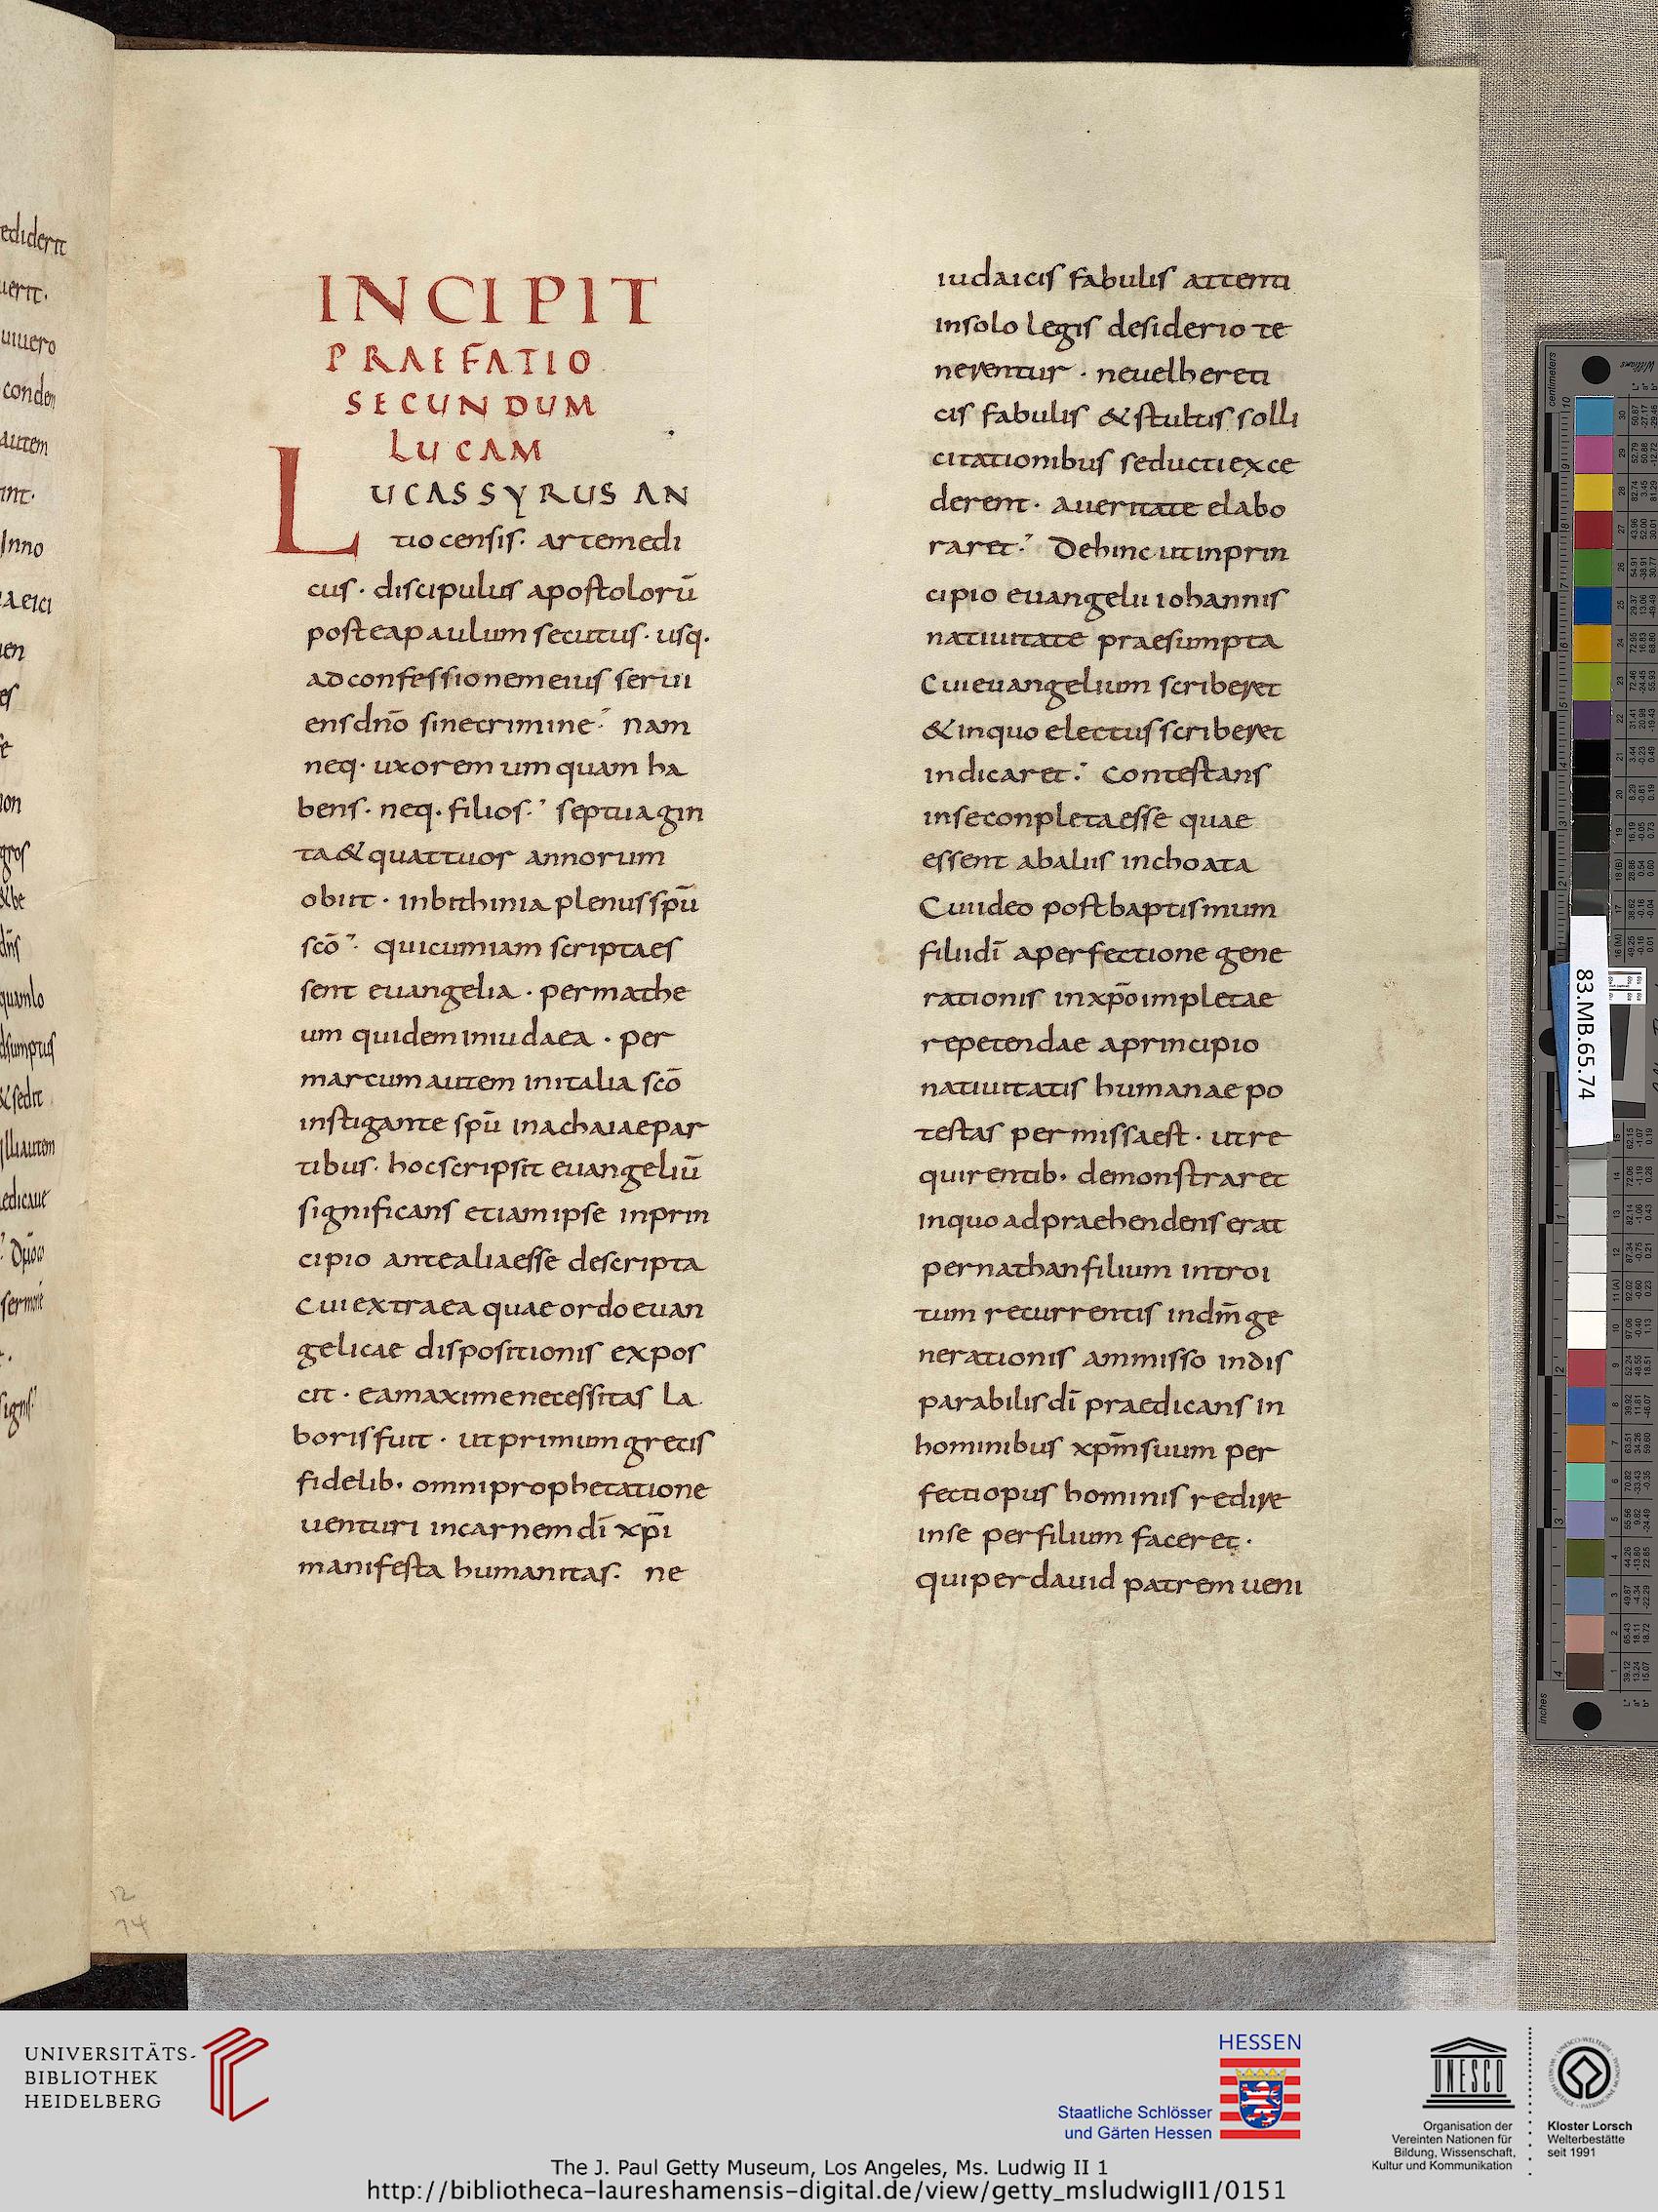 INCIPIT
PRAEFATIO
SECUNDUM
LUCAM
LUCAS SYRUS AN
tiocensis. arte medi
cus. discipulus apostolorū
postea paulum secutus. usq.
ad confessionem eius serui
ens dnō sine crimine. nam
neq. uxorem umquam ha
bens. neq. filios. septuagin
ta & quattuor annorum
obiit. in bithinia plenus spū
scō. qui cum iam scripta es
sent euangelia. per mathe
um quidem in iudaea. per
marcum autem in italia scō
instigante spū in achaiae par
tibus. hoc scripsit euangeliū
significans etiam ipse in prin
cipio ante alia esse descripta
Cui extra ea quae ordo euan
gelicae dispositionis expos
cit. ea maxime necessitas la
boris fuit. ut primum grecis
fidelib. omni prophetatione
uenturi in carnem dī xp̄i
manifesta humanitas. ne
iudaicis fabulis attenti
in solo legis desiderio te
nerentur. ne uel hereti
cis fabulis & stultis solli
citationibus seducti exce
derent. a ueritate elabo
raret. Dehinc ut in prin
cipio euangelii iohannis
natiuitate praesumpta
Cui euangelium scriberet
& in quo electus scriberet
indicaret. Contestans
in se conpleta esse quae
essent ab aliis inchoata
Cui ideo post baptismum
filii dī a perfectione gene
rationis in xp̄o impletae
repetendae a principio
natiuitatis humanae po
testas permissa est. ut re
quirentib. demonstraret
in quo adpraehendens erat
per nathan filium introi
tum recurrentis in dm̄ ge
nerationis ammisso indis
parabilis dī praedicans in
hominibus xp̄m suum per
fecti opus hominis redire
in se per filium faceret.
qui per dauid patrem ueni
12
14
83.MB.65.74
centimeters
inches
UNIVERSITÄTS-
BIBLIOTHEK
HEIDELBERG
HESSEN
Staatliche Schlösser
und Gärten Hessen
UNESCO
Organisation der
Vereinten Nationen für
Bildung, Wissenschaft,
Kultur und Kommunikation
Kloster Lorsch
Welterbestätte
seit 1991
The J. Paul Getty Museum, Los Angeles, Ms. Ludwig II 1
http://bibliotheca-laureshamensis-digital.de/view/getty_msludwigII1/0151